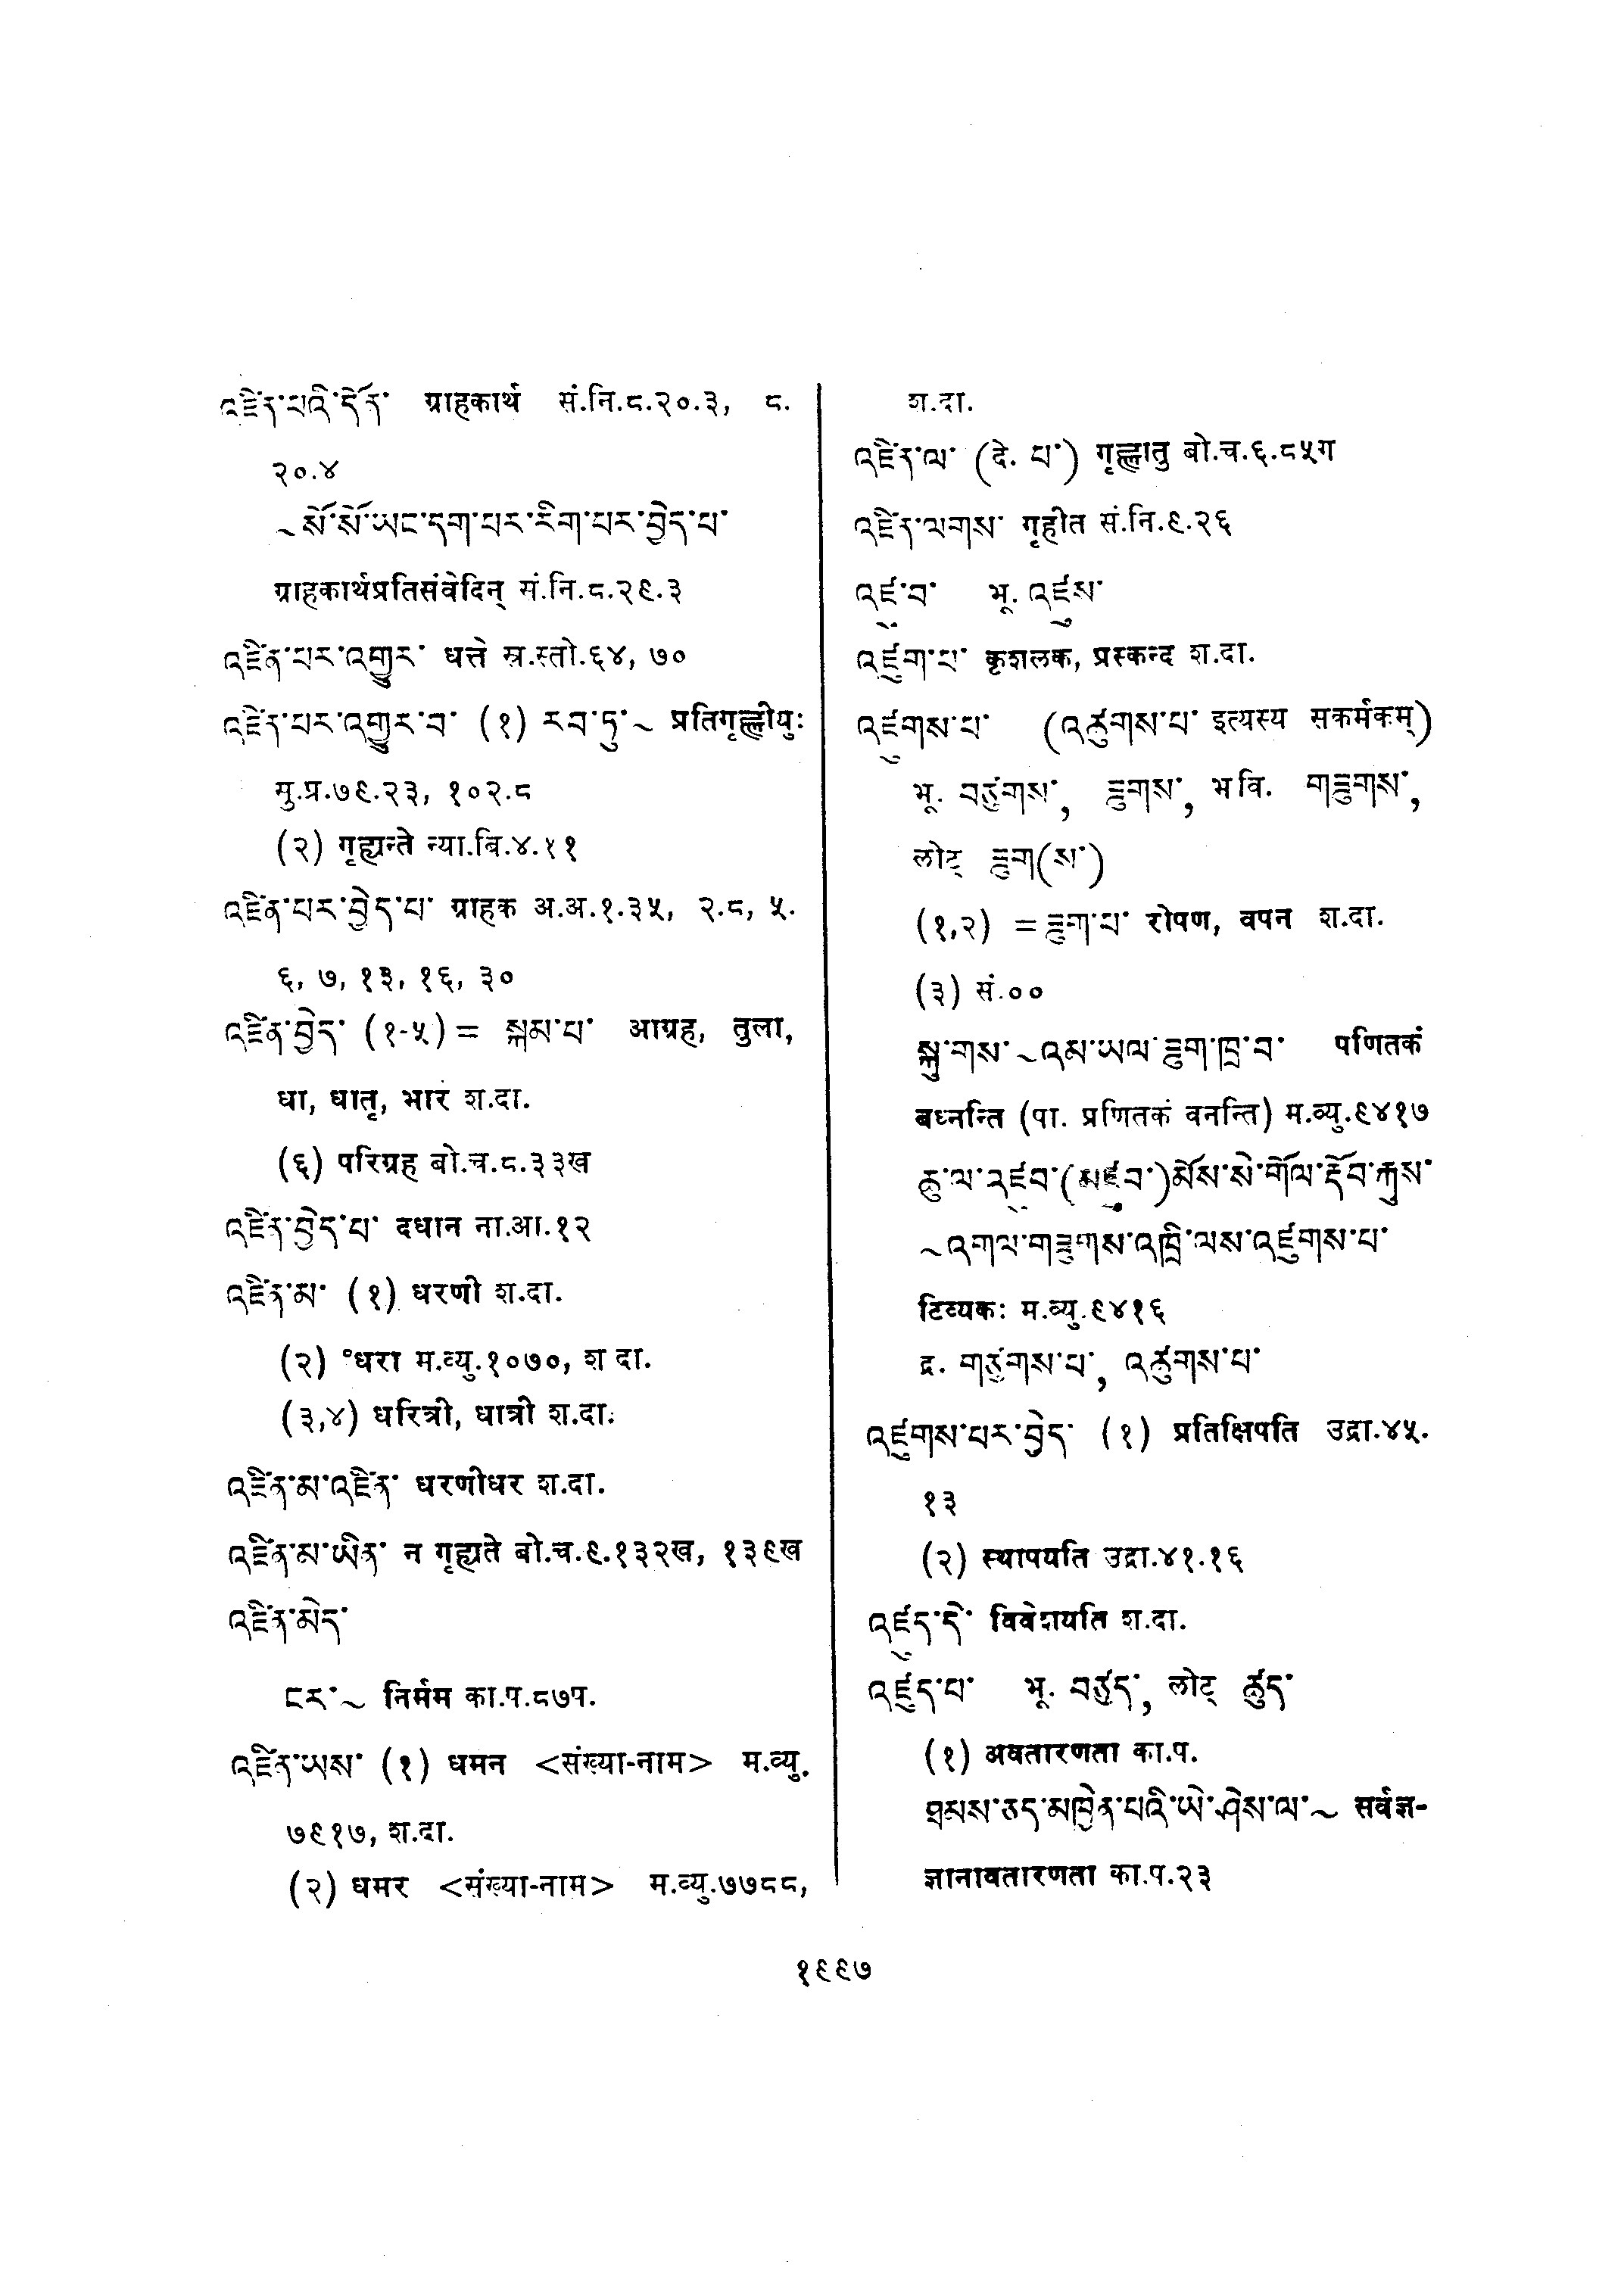 འཛིན་པའི་དོན་ ग्राहकार्थ सं.नि.८.२०.३, ८.
२०.४
~སོ་སོ་ཡང་དག་པར་རིག་པར་བྱེད་པ་
ग्राहकार्थप्रतिसंवेदिन् सं.नि.८.२९.३
འཛིན་པར་འགྱུར་ धत्ते स्र.स्तो.६४, ७०
འཛིན་པར་འགྱུར་བ་ (१) རབ་ཏུ་~ प्रतिगृह्णीयुः
सु.प्र.७९.२३, १०२.८
(२) गृह्यन्ते न्या.बि.४.११
འཛིན་པར་བྱེད་པ་ ग्राहक अ.अ.१.३५, २.८, ५.
६, ७, १३, १६, ३०
འཛིན་བྱེད་ (१-५) = སྐམ་པ་ आग्रह, तुला,
धा, धातृ, भार श.दा.
(६) परिग्रह बो.च.८.३३ख
འཛིན་བྱེད་པ་ दधान ना.आ.१२
འཛིན་མ་ (१) धरणी श.दा.
(२) °धरा म.व्यु.१०७०, श दा.
(३,४) धरित्री, धात्री श.दा.
འཛིན་མ་འཛིན་ धरणीधर श.दा.
འཛིན་མ་ཡིན་ न गृह्यते बो.च.९.१३२ख, १३९ख
འཛིན་མེད་
ངར་~ निर्मम का.प.८७प.
འཛིན་ཡས་ (१) धमन <संख्या-नाम> म.व्यु.
७९१७, श.दा.
(२) धमर <संख्या-नाम> म.व्यु.७७८८,
श.दा.
འཛིན་ལ་ (दे. པ་) गृह्णातु बो.च.६.८५ग
འཛིན་ལགས་ गृहीत सं.नि.९.२६
འཛུ་བ་ भू. འཛུས་
འཛུག་པ་ कृशलक, प्रस्कन्द श.दा.
འཛུགས་པ་ (འཚུགས་པ་ इत्यस्य सकर्मकम्)
भू. བཙུགས་, ཟུགས་, भवि. གཟུགས་,
लोट् ཟུག(ས་)
(१,२) = ཟུག་པ་ रोपण, वपन श.दा.
(३) सं.००
སྐུ་གས་~འམ་ཡལ་ཟུག་ཁྲ་བ་ पणितकं
बध्नन्ति (पा. प्रणितकं वनन्ति) म.व्यु.९४१७
ཆུ་ལ་འཛུབ་(མཛུབ་)མོས་སེ་གོལ་རྡོབ་རྐུས་
~འགལ་གཟུགས་འཁྲི་ལས་འཛུགས་པ་
टिव्यकः म.व्यु.९४१६
द्र. གཙུགས་པ་, འཚུགས་པ་
འཛུགས་པར་བྱེད་ (१) प्रतिक्षिपति उद्रा.४५.
१३
(२) स्थापयति उद्रा.४१.१६
འཛུད་དེ་ विवेशयति श.दा.
འཛུད་པ་ भू. བཙུད་, लोट् ཚུད་
(१) अवतारणता का.प.
ཐམས་ཅད་མཁྱེན་པའི་ཡེ་ཤེས་ལ་~ सर्वज्ञ-
ज्ञानावतारणता का.प.२३
१९९७